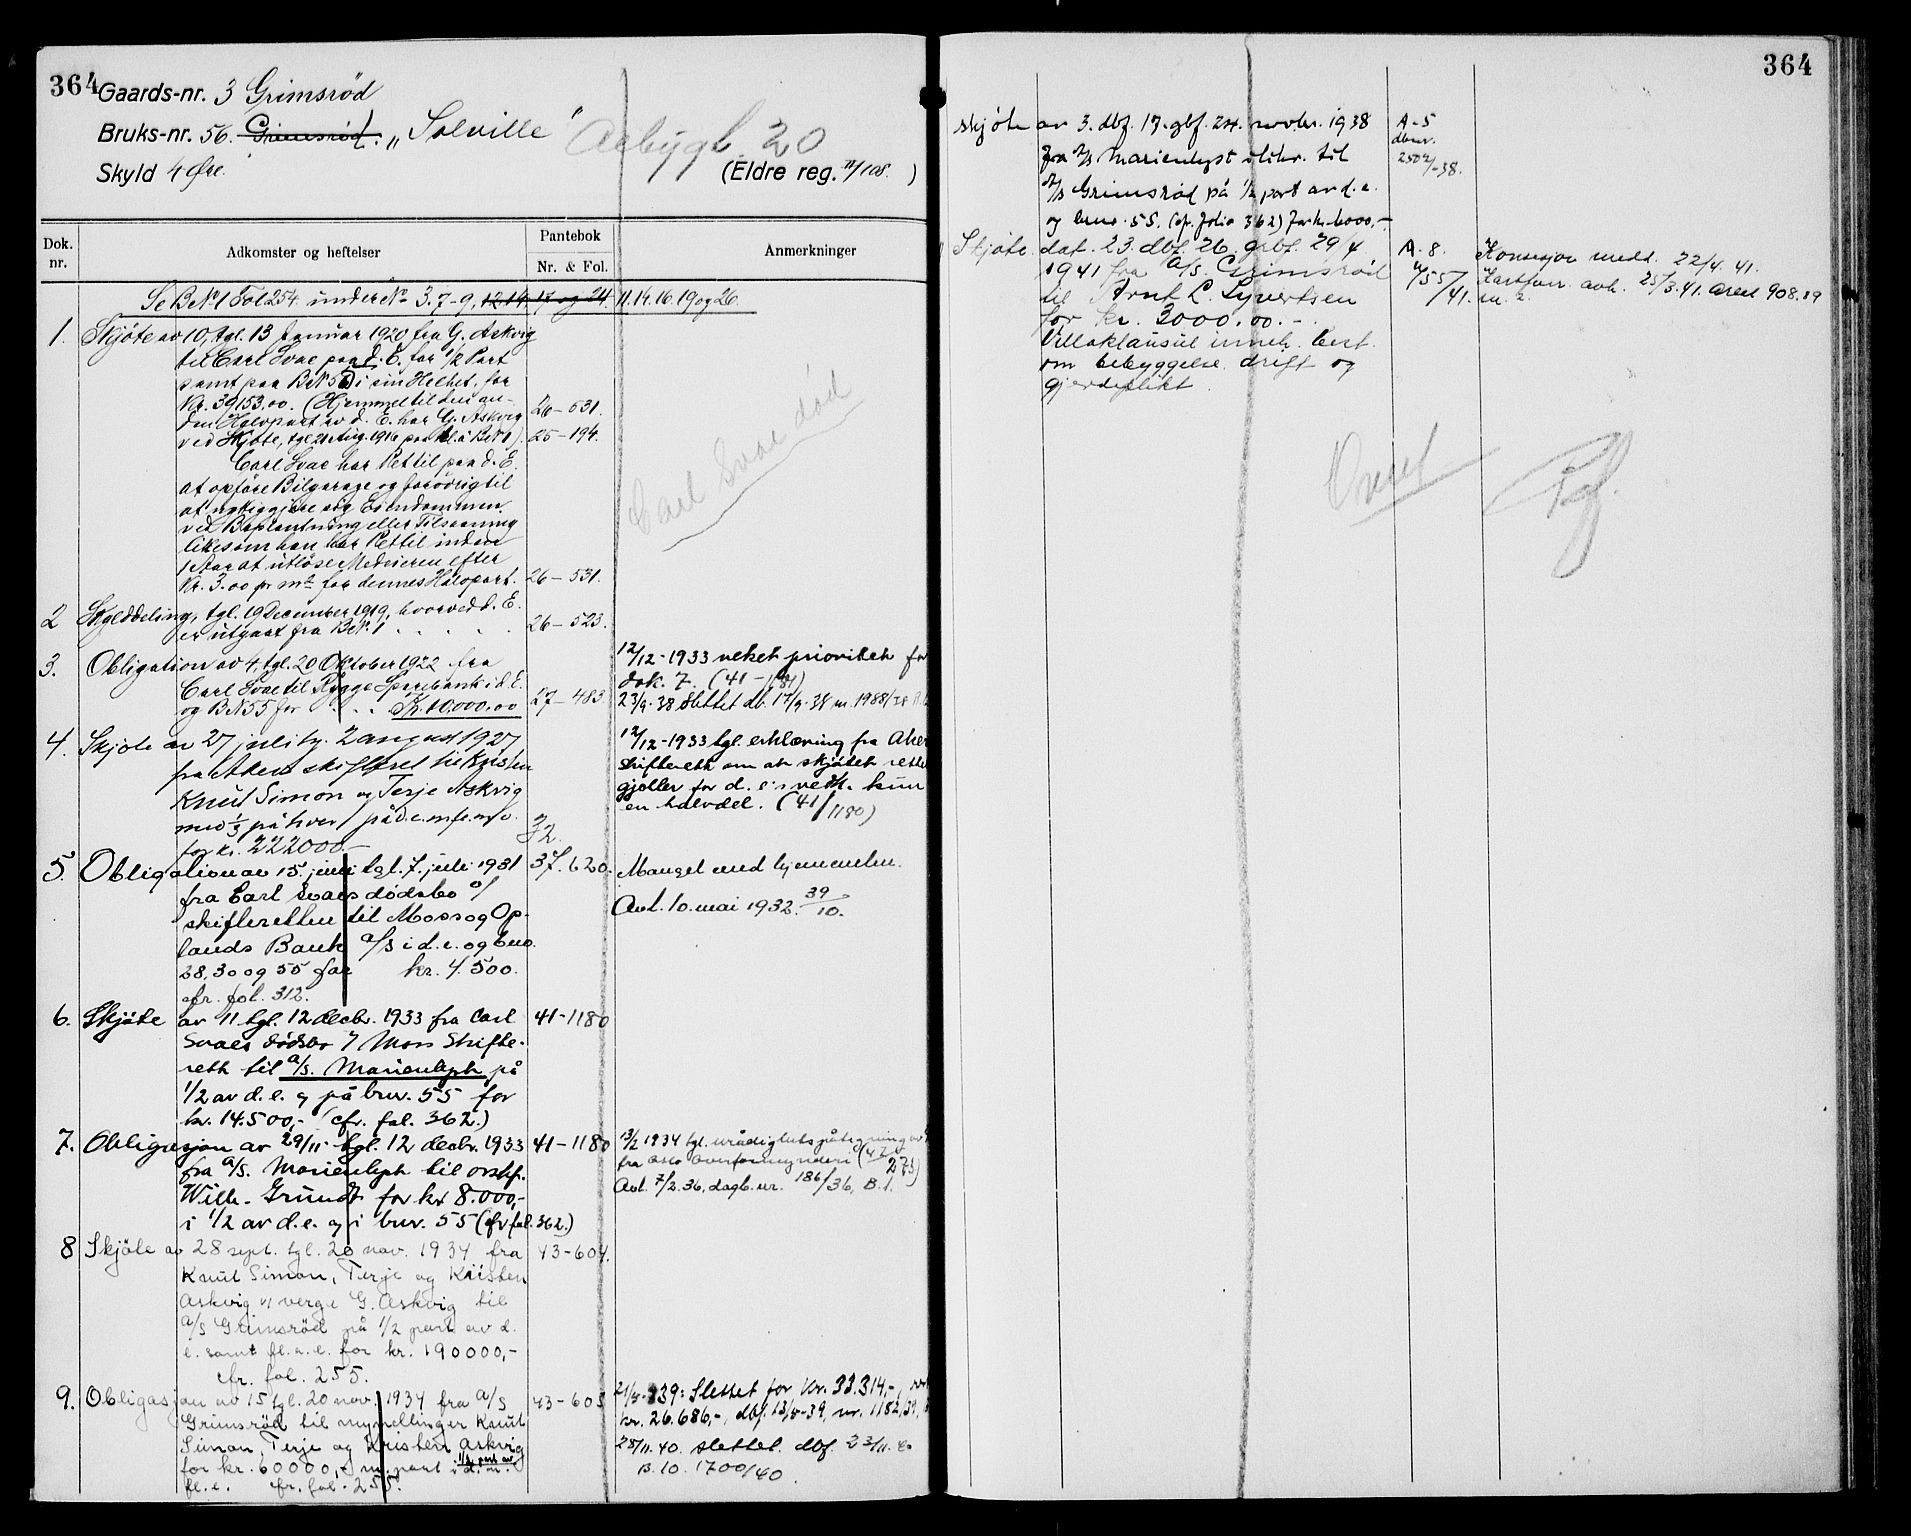 364
Gaards-nr. 3 Grimsrød
Bruks-nr. 56. Grimsrød. „Solville"
Aebygl. 20
Skyld 4 Øre.
(Eldre reg. II/108. )
Dok. nr.
Adkomster og heftelser
Pantebok
Nr. & Fol.
Anmerkninger
Se BNo 1 Fol 254 under No 3. 7-9, 12. 14. 17 og 24. 11. 14. 16. 19 og 26.
1. Skjøte av 10, tgl. 13 Januar 1920 fra G. Askvig
til Carl Svae paa d. E. for 1/2 Part
samt paa BNo 55 i sin Helhet, for
Kr. 39153.00. (Hjemmel til den an-
den Halvpart av d. E. har G. Askvig 26-531.
ved Skjøte, tgl. 21 Aug. 1916 paa bl. a BNo 1). 25-194.
Carl Svae har Ret til paa d. E.
at opføre Bilgarage og forøvrig til
at nyttiggjøre sig Eiendommen
ved Beplantning eller Tilsaaning
likesom han har Ret til inden
1 Aar at utløse Medeieren efter
Kr. 3.00 pr m2 for dennes Halvpart. 26-531.
2 Skylddeling, tgl. 19 December 1919, hvorved d. E.
er utgaat fra BNo. 1 26-523.
3. Obligation av 4, tgl. 20 Oktober 1922 fra
Carl Svae til Rygge Sparebank i d. E.
og BNo 55 for Kr. 10.000.00 27-483
12/12-1933 veket prioritet for
dok. 7. (41-1181)
23/9-38 slettet db. 17/9-38 nr. 1988/38
4. Skjøte av 27 juli tg. 2 august 1927
fra Aker skifteret til Kristen
Knut Simon og Terje Askvig
med 1/3 på hver på d.e. m.fl.
for kr. 222000.- 32.
12/12-1933 tgl. erklæring fra Aker
skifterett om at skjøtet rettel.
gjelder for d. e.s vedk. kun
en halvdel. (41/1180)
5. Obligation av 15. juni tgl. 7. juli 1931 37.620.
fra Carl Svaes dødsbo v/
skifteretten til Moss og Op-
lands Bank A/S i d. e. og bno.
28, 30 og 55 for kr. 4.500.
cfr. fol. 312.
Mangel med hjemmelen.
Avl. 10. mai 1932. 39/10.
6. Skjøte av 11 tgl. 12 decbr. 1933 fra Carl 41-1180
Svaes dødsbo v/ Moss Skifte-
rett til A/S. Marienlyst på
1/2 av d. e. og på bnr. 55 for
kr. 14.500,- (cfr. fol. 362.)
7. Obligasjon av 29/11 tgl. 12 decbr. 1933 41-1180
fra A/S. Marienlyst til orskf.
Wilh. Grundt for kr 8.000,-
i 1/2 av d. e. og i bnr. 55 (cfr fol. 362.)
13/2 1934 tgl. urådighetspåtegning av
fra Oslo Overformynderi (42/273)
Avl. 7/2.36, dagb. nr. 186/36, B. 1.
8 Skjøte av 28 sept. tgl. 20 nov. 1934 fra 43-604.
Knut Simon, Terje og Kristen
Askvig v/ verge G. Askvig til
A/S Grimsrød på 1/2 part av d.
e. samt fl. e. for kr. 190000,-
cfr. fol. 255.
9. Obligasjon av 15 tgl. 20 nov. 1934 fra A/S 43-605
Grimsrød til myndlinger Knut
Simon, Terje og Kristen Askvig
for kr. 60000,- m. pant i 1/2 part av d. e. m.
fl. e. cfr. fol. 255.
21/4-39: Slettet for kr. 33.314,-,
kr. 26.686,-, dbf. 13/4-39, nr. 1182/39,
28/11.40. slettet. dbf. 23/11.40
B. 10. 1700/40.
Carl Svae død
364
Skjøte av 3. dbf. 17. gbf. 24. novbr. 1938
fra A/S Marienlyst til
A/S Grimsrød på 1/2 part av d. e.
og bno. 55. (cfr. folio 362) for kr. 6000,-
A-5
dbnr.
2502/-38.
Skjøte dat. 23. dbf. 26. gbf. 29/4
1941 fra A/S. Grimsrød
til Arnt L. Syvertsen
for kr. 3000.00.-
Villaklausul inneh. best.
om bebyggelse, drift og
gjerdeplikt.
A-8.
755/41.
Konsesjon medd. 22/4.41.
Kartforr. avh. 25/3.41. areal 908.89
m2.